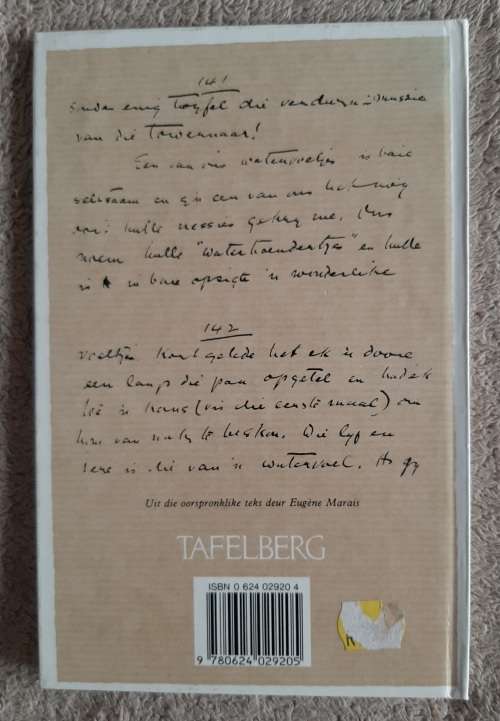 141
sonder enig twyfel die verdwyn-
van die towenaar!
Een van ons watervoëltjies is baie
seldsaam en g'n een van ons het nog
ooit hulle nessies gekry nie. Ons
noem hulle "waterhoendertjies" en hulle
is in baie opsigte 'n wonderlike
142
voëltjie. Kort gelede het ek 'n dooie
een langs die pan opgetel en had ek
toe 'n kans (vir die eerste maal) om
hom van naby te besken. Die lyf en
vere is die van 'n watervoel. As gy
Uit die oorspronklike teks deur Eugène Marais
TAFELBERG
ISBN 0 624 02920 4
9 780624 029205